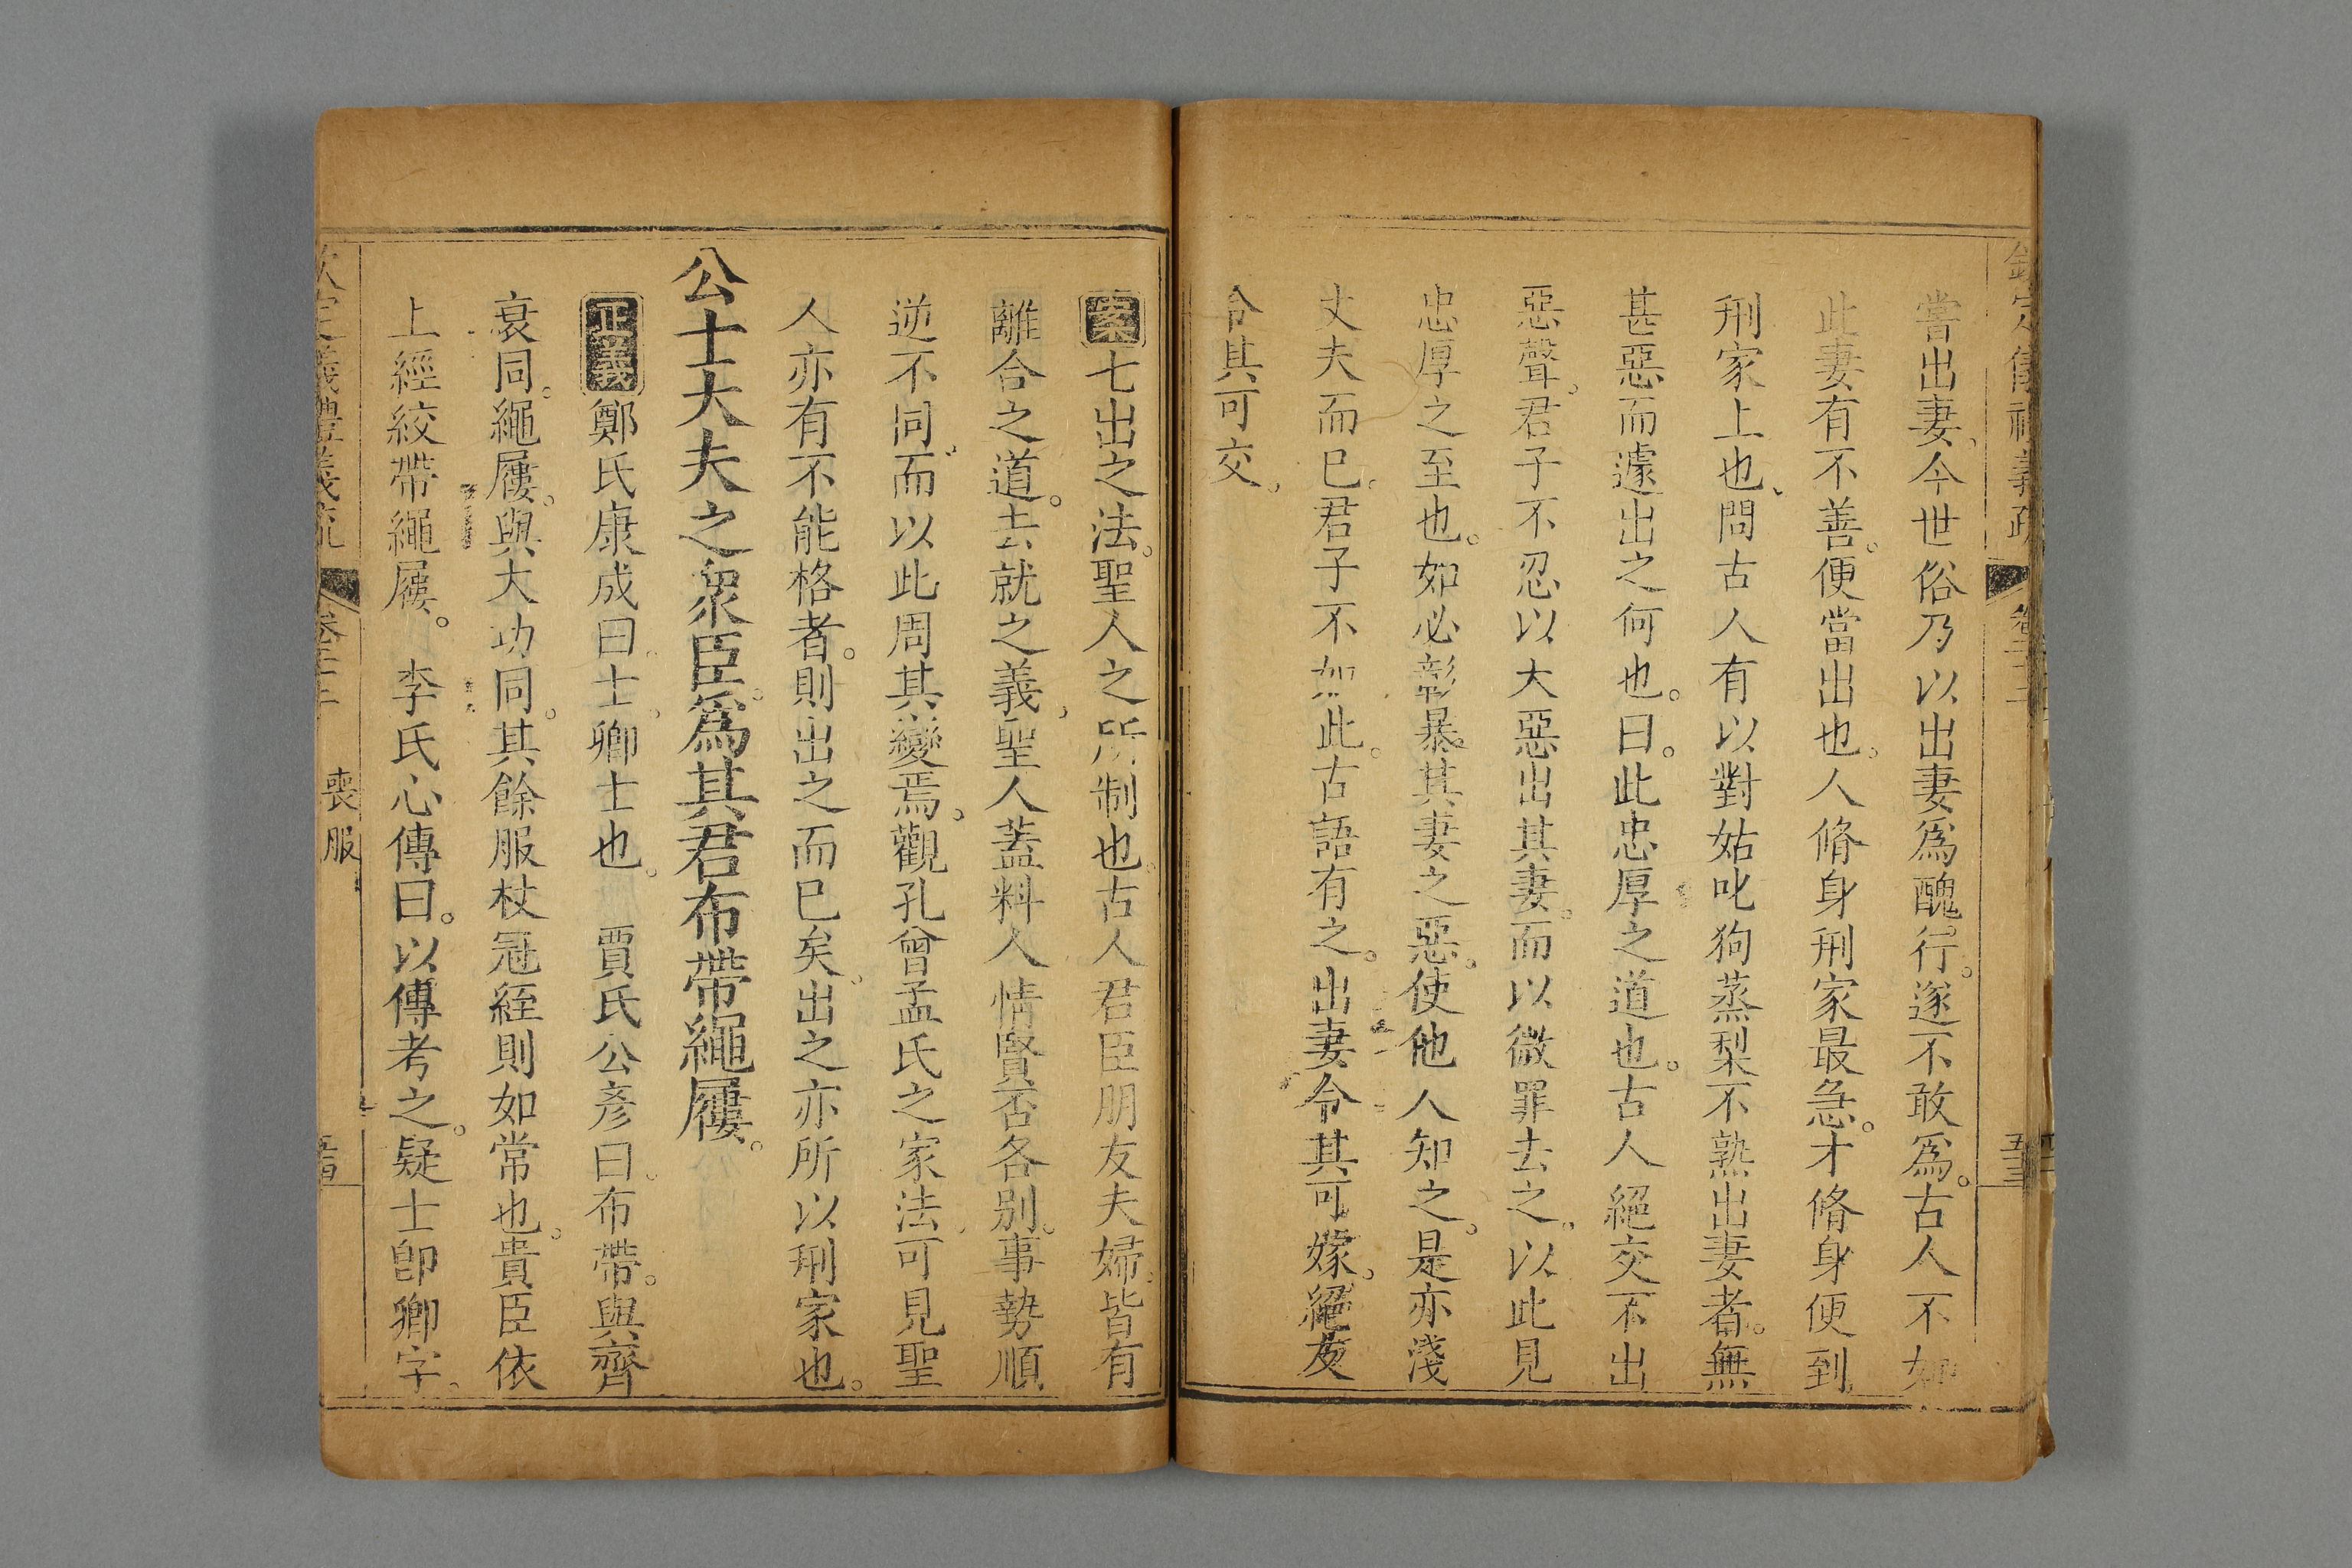 嘗出妻今世俗乃以出妻爲醜行遂不敢爲古人不如
此妻有不善便當出也人脩身刑家最急才脩身便到
刑家上也問古人有以對姑叱狗蒸梨不熟出妻者無
甚惡而遽出之何也曰此忠厚之道也古人絕交不出
惡聲君子不忍以大惡出其妻而以微罪去之以此見
忠厚之至也如必彰暴其妻之惡使他人知之是亦淺
丈夫而已君子不如此古語有之出妻令其可嫁絕友
令其可交
案七出之法聖人之所制也古人君臣朋友夫婦皆有
離合之道去就之義聖人蓋料人情賢否各別事勢順
逆不同而以此周其變焉觀孔曾孟氏之家法可見聖
人亦有不能格者則出之而已矣出之亦所以刑家也
公士大夫之衆臣爲其君布帶繩屨
正義鄭氏康成曰士卿士也 賈氏公彥曰布帶與齊
衰同繩屨與大功同其餘服杖冠絰則如常也貴臣依
上經絞帶繩屨 李氏心傳曰以傳考之疑士卽卿字
喪服